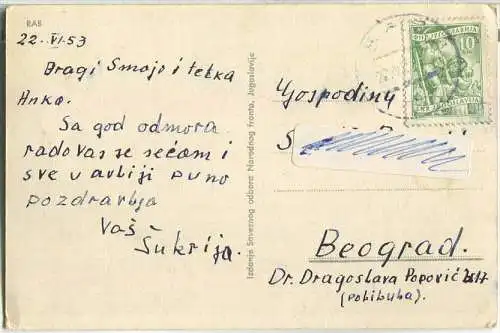 RAB
22. VI. 53
Dragi Smajo i tetka
Anko.
Sa god odmora
rado vas se sećam i
sve u avliji puno
pozdravlja
Vaš
Šukrija.
Izdanje Saveznog odbora Narodnog fronta, Jugoslavije
10
Gospodinu
S
Beograd.
Dr. Dragoslava Popović
(Palilula).